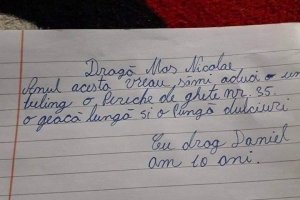 Dragă Moș Nicolae
Anul acesta vreau sămi aduci o un
tuling o Pereche de ghete nr. 35
o geacă lungă si o Pungă dulciuri
Cu drag Daniel
am 10 ani.